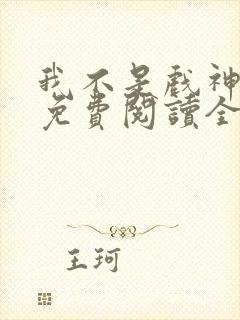 我不是戲神
免費閱讀全
王珂